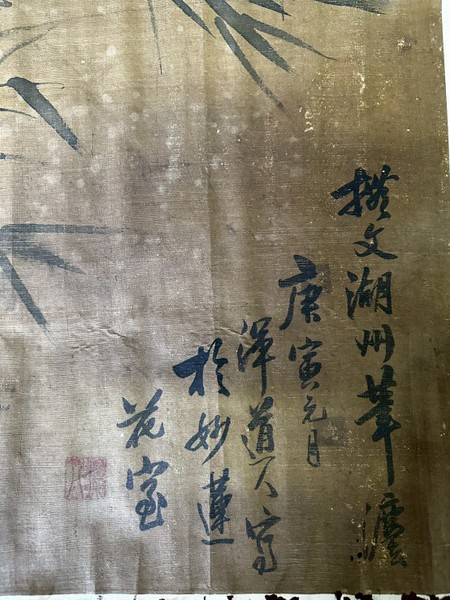 文湖州筆灋
庚寅元月
渾道人寫
於妙蓮
花室